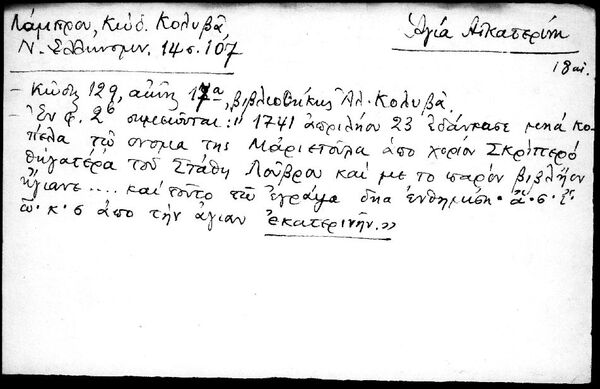 Λάμπρου, Κώδ. Κολυβᾶ
Ν. Ἑλληνομν. 14 σ. 107
Ἁγία Αἰκατερίνη
18 αἰ.
– Κώδιξ 129, αἰῶν 17α, βιβλιοθήκης Ἀλ. Κολυβᾶ.
– Ἐν φ. 2β σημειοῦται: " 1741 ἀπριλήου 23 ἐδάνκασε μηά κο
πέλα τῶ ονομα της Μαριετοῦλα ἀπο χοριον Σκριπερό
θηγατέρα τοῦ Στάθη Λοῦβρου και με το παρόν βιβλήον
ἤγιανε .... και τοῦτο τῶ ἔγραψα δηα ἐνθημιση. ἀ. σ.
ῶ. κ. σ ἀπο τὴν ἁγιαν ἐκατερινῆν.»